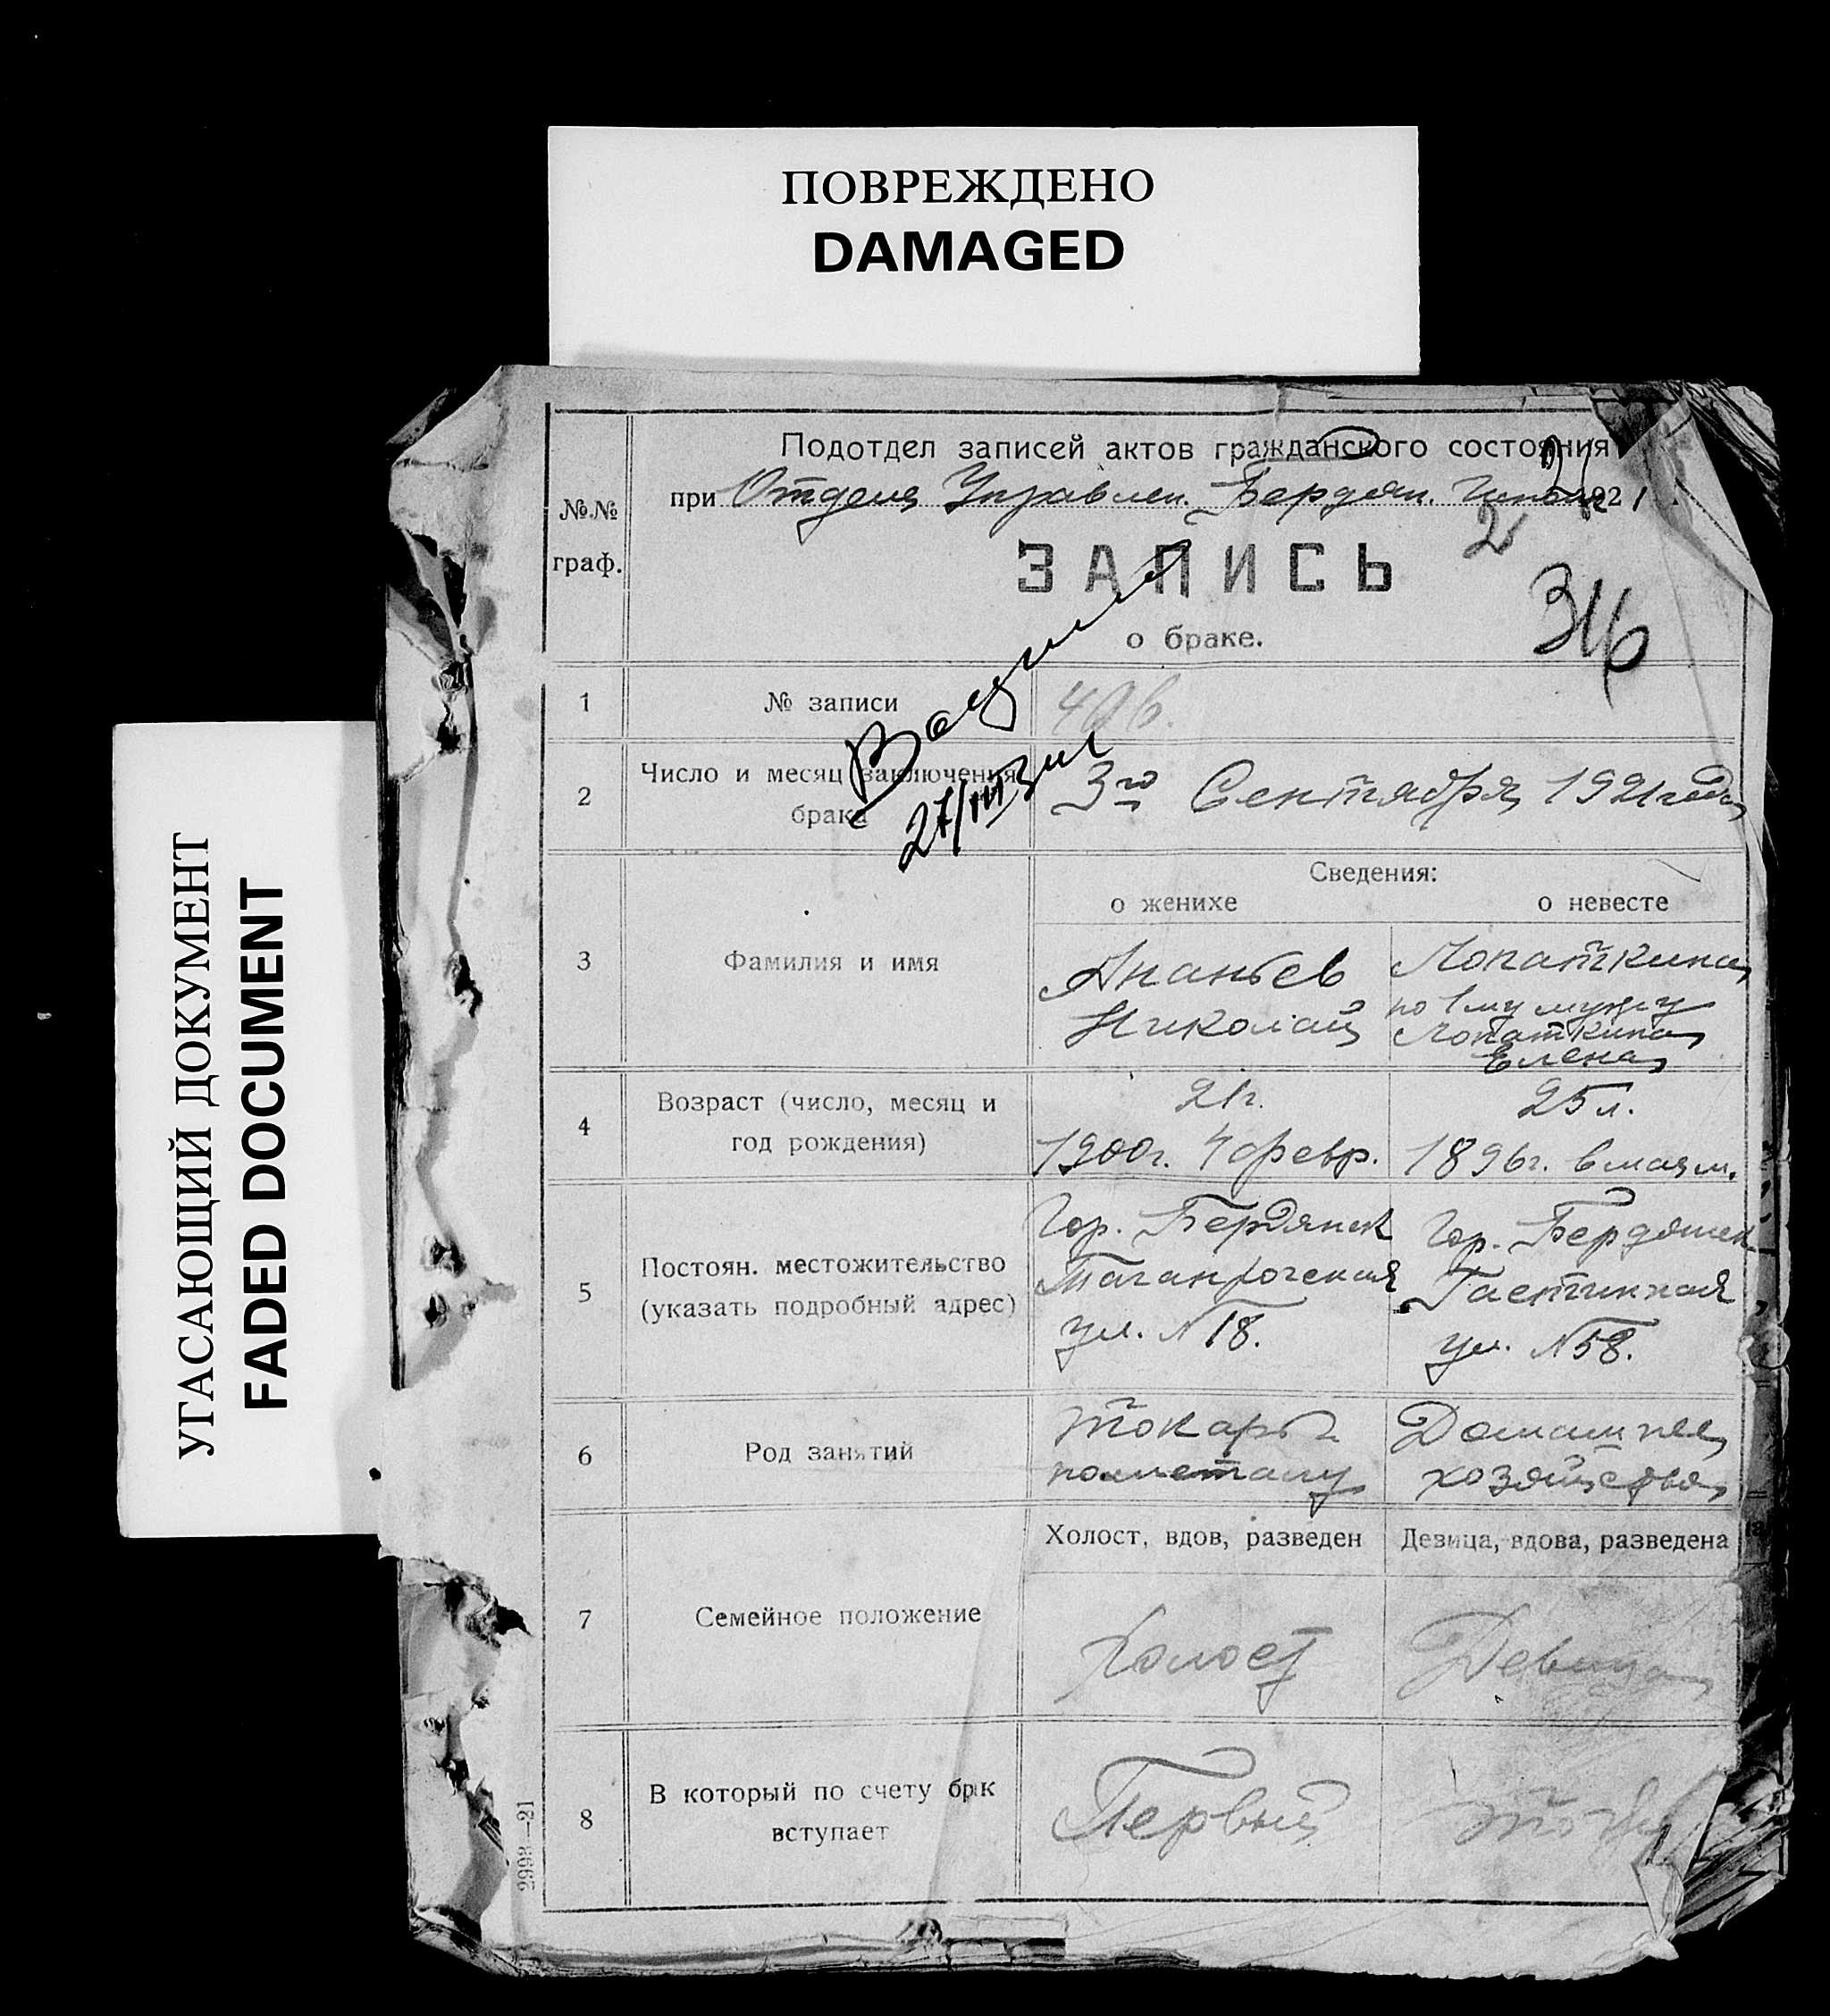 ПОВРЕЖДЕНО
DAMAGED
УГАСАЮЩИЙ ДОКУМЕНТ
FADED DOCUMENT
Подотдел записей актов гражданского состояния
при Отдела Управлен. Бердян. 1921
№№
граф.
ЗАПИСЬ
2
о браке.
1
№ записи
2
Число и месяц заключения
брака
3го Сентября 1921 года
27/III
Сведения:
о женихе
о невесте
3
Фамилия и имя
Ананьев
Николай
Лопаткина
по 1му мужу
Лопаткина
Елена
4
Возраст (число, месяц и
год рождения)
21г.
1900г. 4 февр.
25 л.
1896г. в мая м.
5
Постоян. местожительство
(указать подробный адрес)
Гор. Бердянск
Таганрогская
ул. №18.
Гор. Бердянск
ул. №58.
6
Род занятий
Токарь
по металу
Домашнее
хозяйство
Холост, вдов, разведен
Девица, вдова, разведена
7
Семейное положение
Холост
Девица
8
В который по счету брак
вступает
Первый
2993—21